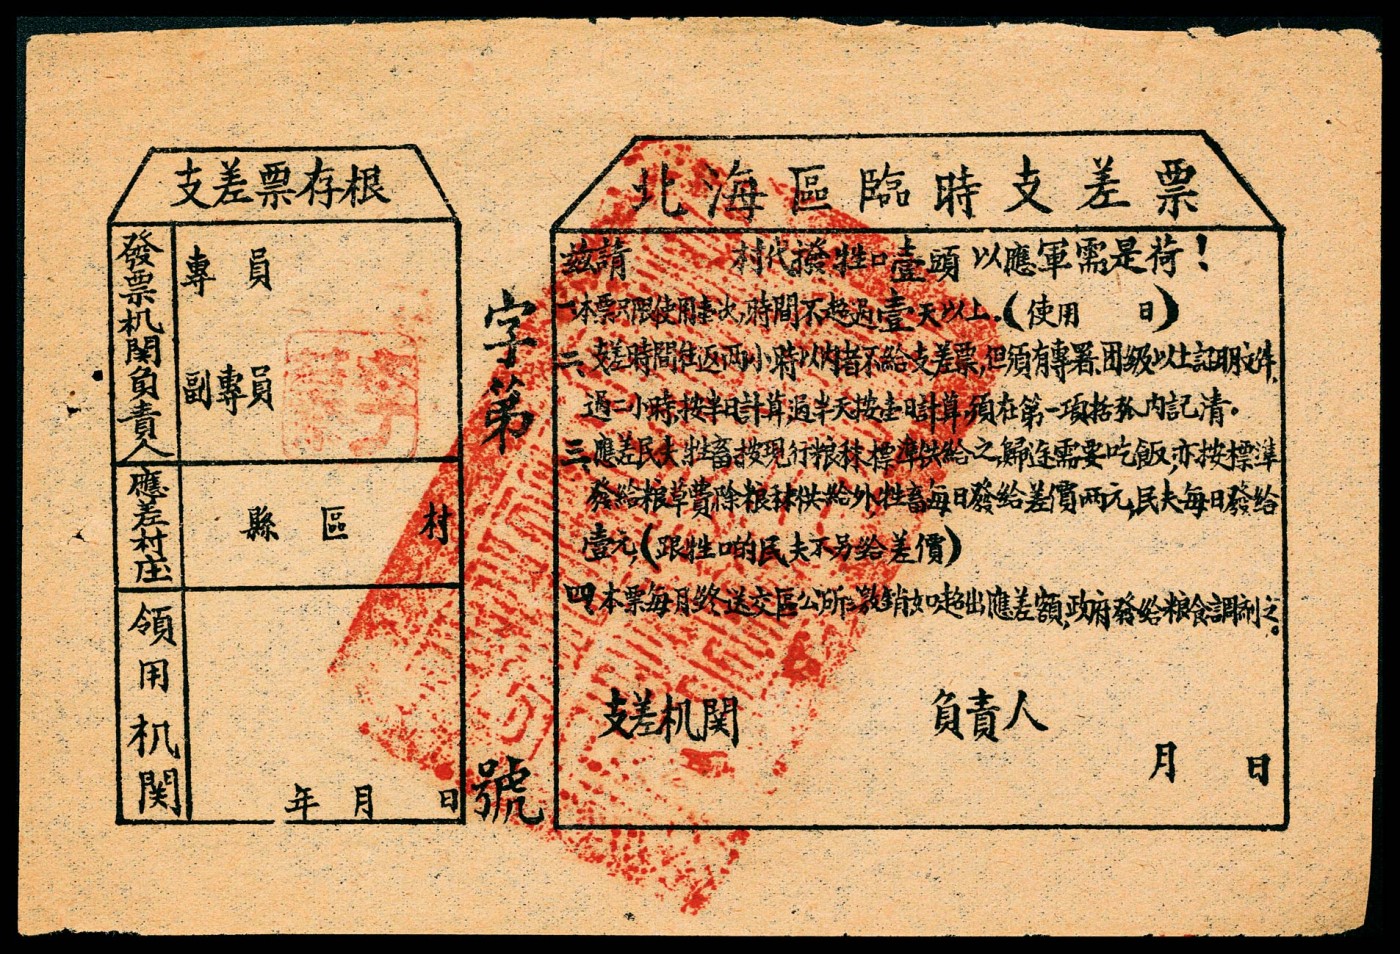 支差票存根
發票机関負責人
專員
副專員
應差村庄
縣 區 村
領用机関
年 月 日
字第 號
北海區臨時支差票
茲請 村代撥牲口壹頭以應軍需是荷！
一、本票只限使用壹次，時間不超過壹天以上。（使用 日）
二、支差時間往返两小時以内者不給支差票，但須有專署、团級以上証明文件，
過二小時，按半日計算，過半天按壹日計算，須在第一項括弧内記清。
三、應差民夫牲畜按現行粮秣標準供給之，歸途需要吃飯，亦按標準
發給粮草費除粮秣供給外，牲畜每日發給差價两元，民夫每日發給
壹元，（跟牲口的民夫不另給差價）
四、本票每月終送交區公所繳銷如超出應差額，政府發給粮食調剂之。
支差机関 負責人
月 日